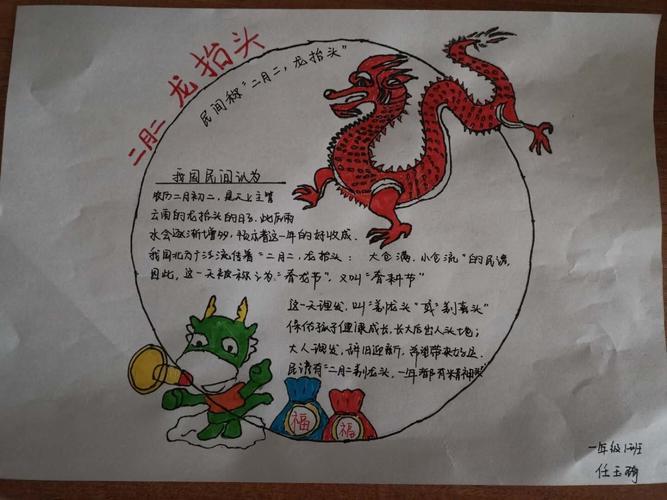 二月二 龙抬头
民间称“二月二,龙抬头”
我国民间认为
农历二月初二,是天上主管
云雨的龙抬头的日子,此后雨
水会逐渐增多,预示着这一年的好收成.
我国北方广泛流传着“二月二,龙抬头:大仓满,小仓流”的民谚,
因此,这一天被称认为“春龙节”,又叫“春耕节”
这一天理发,叫“剃龙头”或“剃喜头”
保佑孩子健康成长,长大后出人头地;
大人理发,辞旧迎新,希望带来好运.
民谚有“二月二剃龙头,一年都有精神头”
福
福
一年级
任玉